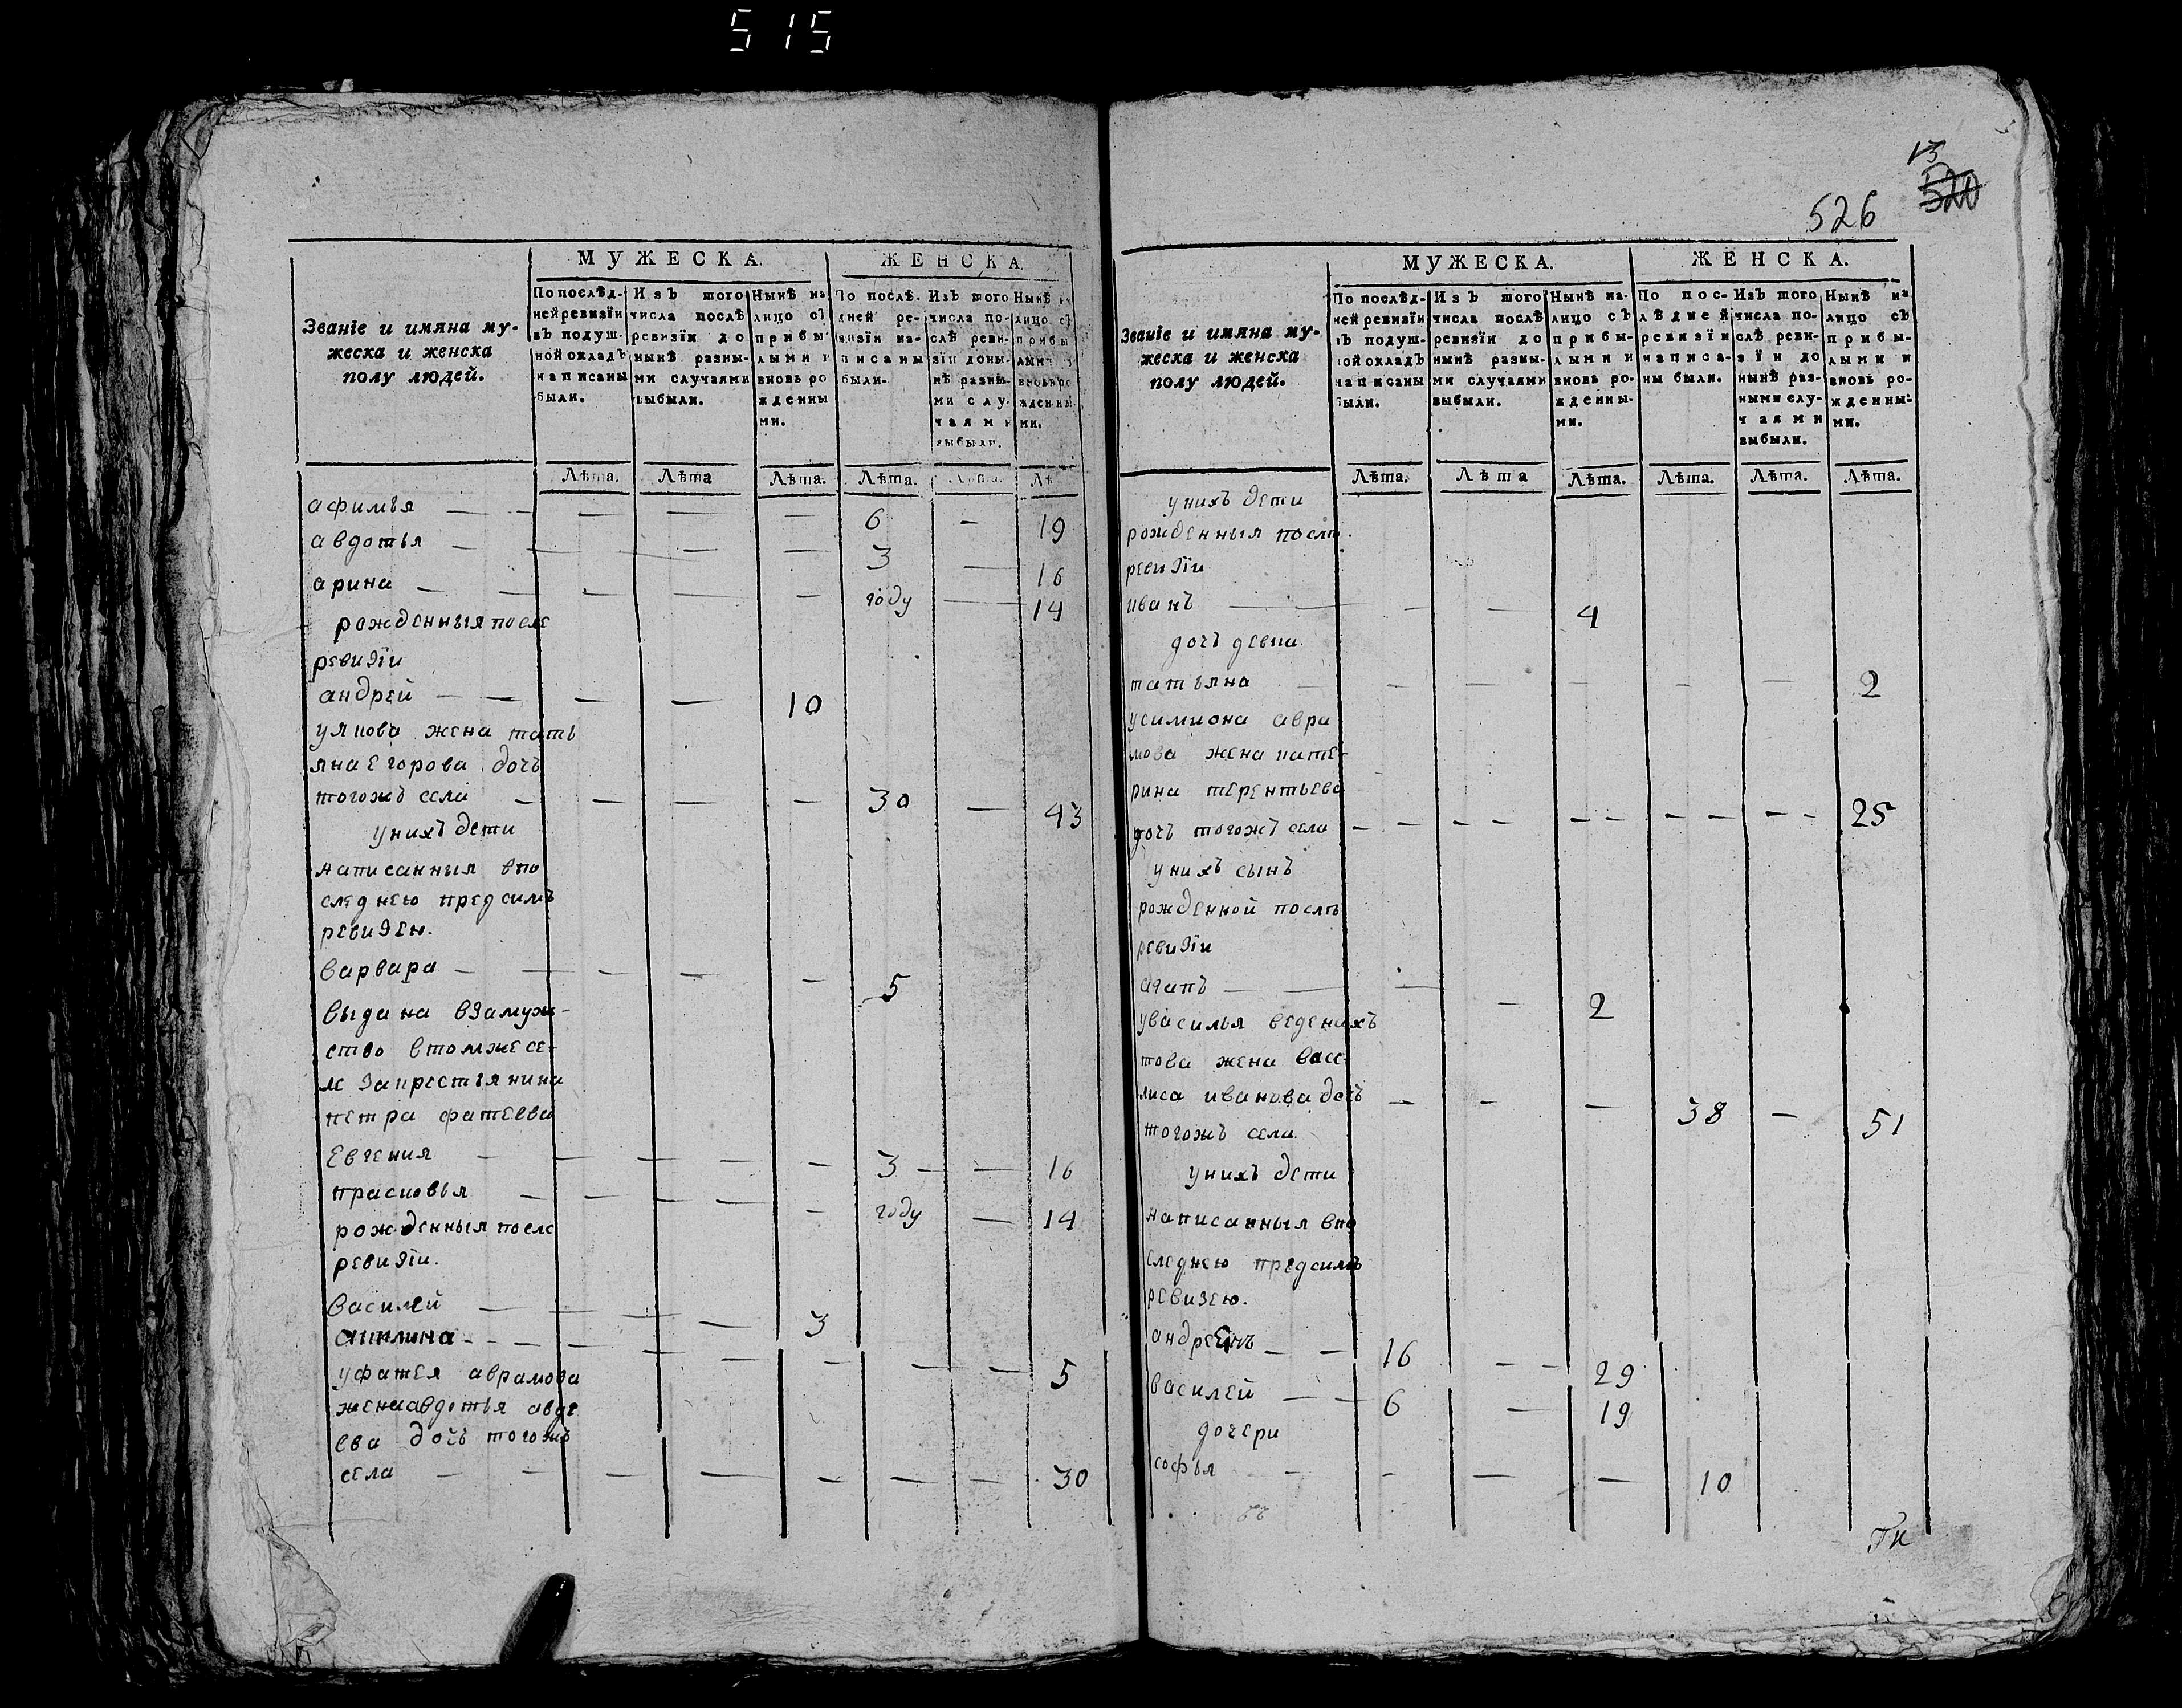 515
МУЖЕСКА.
ЖЕНСКА.
Званіе и имяна му-
жеска и женска
полу людей.
По послѣд-
ней ревизіи
въ подуш-
ной окладъ
написаны
были.
Изъ того
числа послѣ
ревизіи до
нынѣ разны-
ми случаями
выбыли.
Нынѣ на
лицо съ
прибы
лыми и
вновь ро
жденны
ми.
По послѣ-
дней ре-
визіи на-
писаны
были.
Изъ того
числа по-
слѣ реви-
зіи доны-
нѣ разны-
ми слу-
чаями
выбыли.
Нынѣ на
лицо съ
прибы
лыми и
вновь ро
жденны
ми.
Лѣта. Лѣта Лѣта. Лѣта. Лѣта. Лѣ
афимья 6 19
авдотья 3 16
арина году 14
рожденныя после
ревизіи
андрей 10
у якова жена тать
яна егорова дочь
тогожъ села 30 43
у нихъ дети
написанныя впо
следнею предсимъ
ревизею.
варвара 5
выдана взамуж-
ство втомже се-
ле закрестьянина
петра фатеева
Евгения 3 16
прасковья году 14
рожденныя после
ревизіи.
василей 3
акилина 5
уфатея аврамова
жена авдотья авде
ева дочь тогожъ
села 30
526
520
13
МУЖЕСКА.
ЖЕНСКА.
Званіе и имяна му-
жеска и женска
полу людей.
По послѣд-
ней ревизіи
въ подуш-
ной окладъ
написаны
были.
Изъ того
числа послѣ
ревизіи до
нынѣ разны-
ми случаями
выбыли.
Нынѣ на-
лицо съ
прибы-
лыми и
вновь ро-
жденны-
ми.
По пос-
лѣдней
ревизіи
написа-
ны были.
Изъ того
числа по-
слѣ реви-
зіи до
нынѣ раз-
ными слу-
чаями
выбыли.
Нынѣ на
лицо съ
прибы-
лыми и
вновь ро-
жденны-
ми.
Лѣта. Лѣта Лѣта. Лѣта. Лѣта. Лѣта.
у нихъ дети
рожденныя послѣ
ревизіи
иванъ 4
дочь девка
татьяна 2
усимиона авра
мова жена кате-
рина терентьева
дочь тогожъ села 25
у нихъ сынъ
рожденной послѣ
ревизіи
агапъ 2
увасилья веденихъ
това жена васе-
лиса иванова дочь 38 51
тогожъ села
у нихъ дети
написанныя впо
следнею предсимъ
ревизею.
16 29
василей 6 19
дочери
софья 10